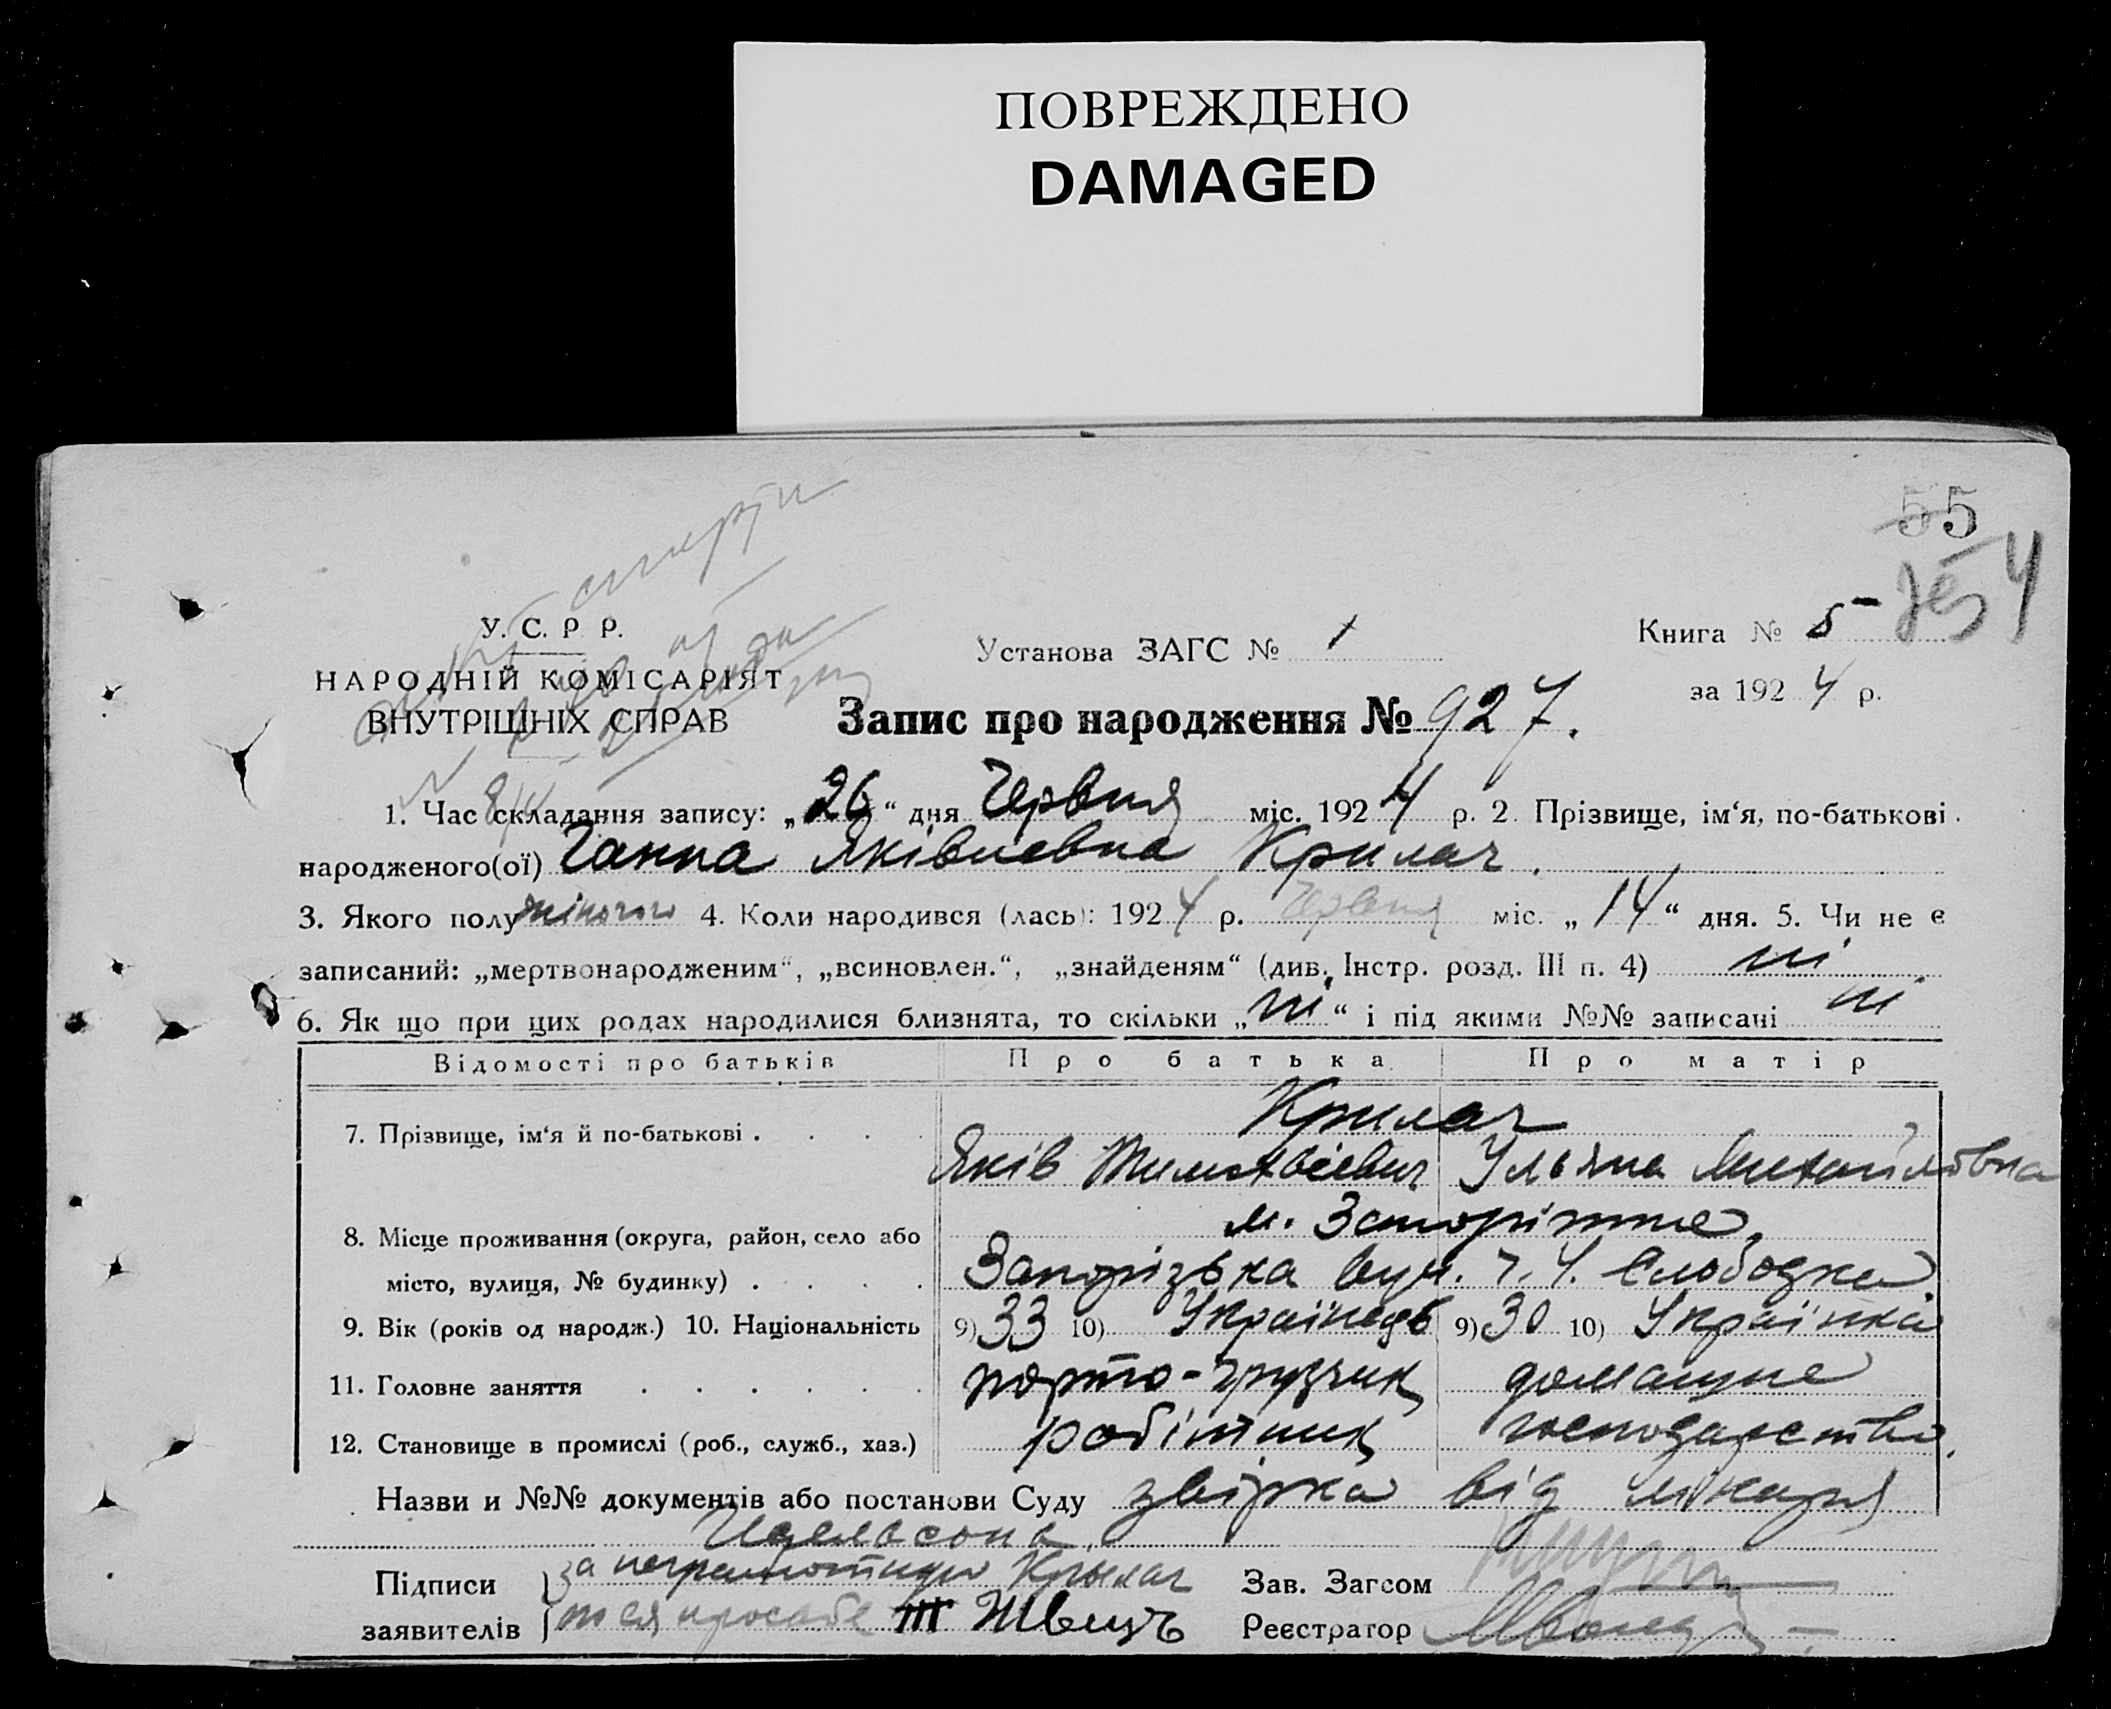 ПОВРЕЖДЕНО
DAMAGED
55
4
У. С. Р Р.
НАРОДНІЙ КОМІСАРІЯТ
ВНУТРІШНІХ СПРАВ
Установа ЗАГС № 1
Книга № 5
за 1924 р.
Запис про народження № 927.
1. Час складання запису: „26“ дня Червня міс. 1924 р. 2. Прізвище, ім‘я, по-батькові
народженого(ої) Ганна Яківлевна Крилач.
3. Якого полу жіночого 4. Коли народився (лась): 1924 р. Червня міс. „14“ дня. 5. Чи не є
записаний: „мертвонародженим“, „всиновлен.“, „знайденям“ (див. Інстр. розд. III п. 4) ні
6. Як що при цих родах народилися близнята, то скільки „ні“ і під якими №№ записані ні
Відомості про батьків Про батька Про матір
7. Прізвище, ім‘я й по-батькові . . . . Крилач
Яків Тимофієвич Ульяна Михайловна
8. Місце проживання (округа, район, село або м. Запоріжжє,
місто, вулиця, № будинку) . . . . Запорізька вул. ч. 4. Слободка.
9. Вік (років од народж.) 10. Національність 9) 33 10) Українець 9) 30 10) Українка
11. Головне заняття . . . . . . порто-грузчик домашнє
12. Становище в промислі (роб., служб., хаз.) робітник господарство.
Назви и №№ документів або постанови Суду звірка від лікаря
Підписи за неграмотную Крылач Зав. Загсом
заявителів по ея просьбе Швецъ Реєстратор